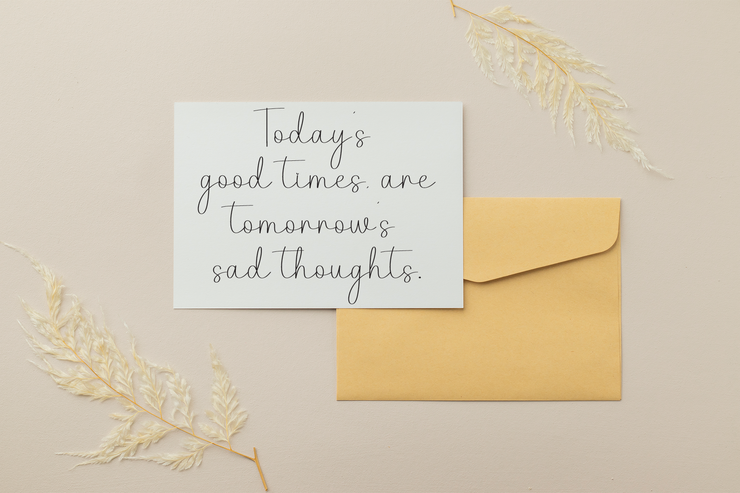 Today's
good times. are
tomorrow's
sad thoughts.